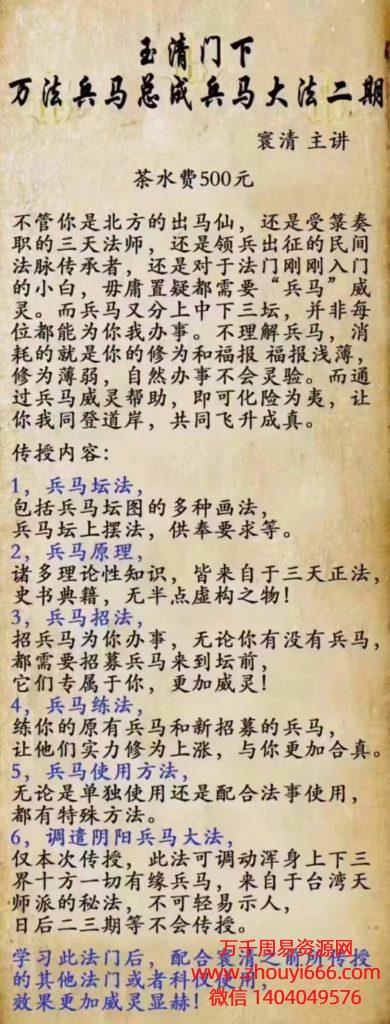 玉清门下
万法兵马总成兵马大法二期
寰清 主讲
茶水费500元
不管你是北方的出马仙，还是受箓奏
职的三天法师，还是领兵出征的民间
法脉传承者，还是对于法门刚刚入门
的小白，毋庸置疑都需要“兵马”威
灵。而兵马又分上中下三坛，并非每
位都能为你我办事。不理解兵马，消
耗的就是你的修为和福报 福报浅薄，
修为薄弱，自然办事不会灵验。而通
过兵马威灵帮助，即可化险为夷，让
你我同登道岸，共同飞升成真。
传授内容：
1，兵马坛法，
包括兵马坛图的多种画法，
兵马坛上摆法，供奉要求等。
2，兵马原理，
诸多理论性知识，皆来自于三天正法，
史书典籍，无半点虚构之物！
3，兵马招法，
招兵马为你办事，无论你有没有兵马，
都需要招募兵马来到坛前，
它们专属于你，更加威灵！
4，兵马练法，
练你的原有兵马和新招募的兵马，
让他们实力修为上涨，与你更加合真。
5，兵马使用方法，
无论是单独使用还是配合法事使用，
都有特殊方法。
6，调遣阴阳兵马大法，
仅本次传授，此法可调动浑身上下三
界十方一切有缘兵马，来自于台湾天
师派的秘法，不可轻易示人，
日后二三期等不会传授。
学习此法门后，配合寰清之前所传授
的其他法门或者科仪使用，
效果更加威灵显赫！
万千周易资源网
www.zhouyi666.com
微信 1404049576